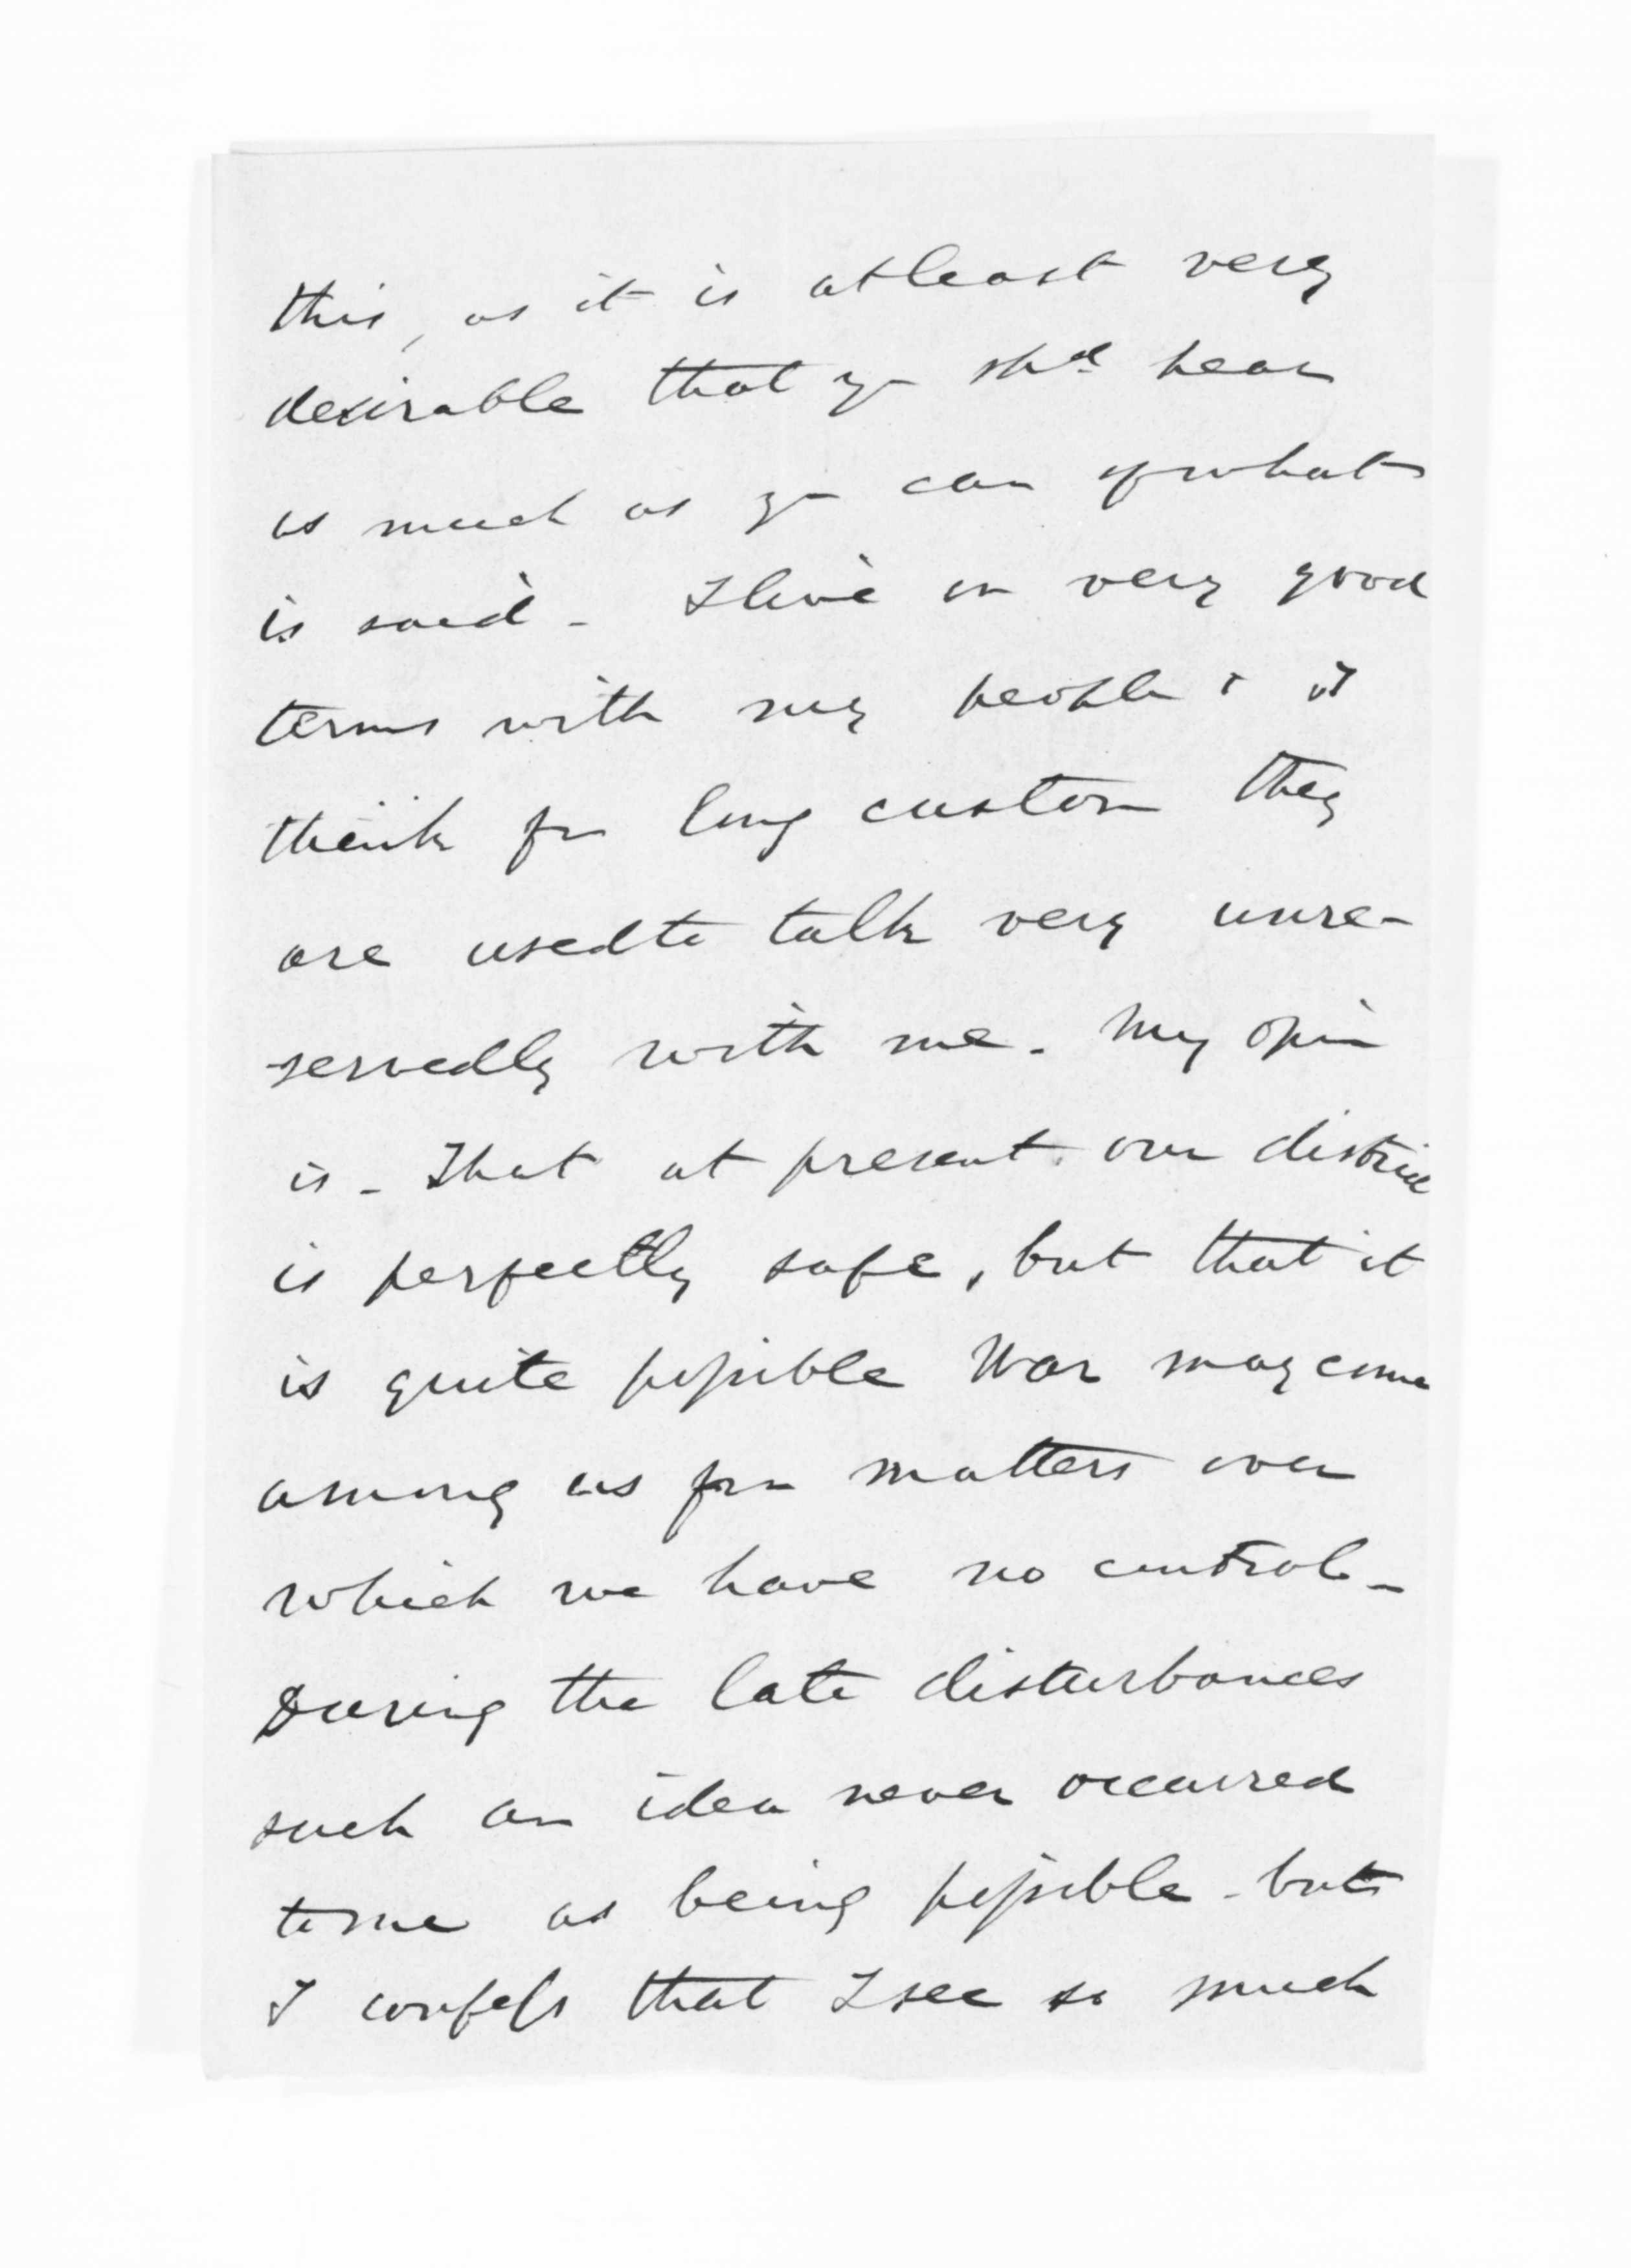 this, as it is at least very
desirable that yu shd hear
as much as yu can of what
is said - I live on very good
terms with my people & I
think fm long custom they
are used to talk very unre-
servedly with me - My opin
is - That at present our district
is perfectly safe, but that it
is quite possible War may come
among us fm matters over
which we have no control -
During the late disturbances
such an idea never occurred
to me as being possible - but
I confess that I see so much